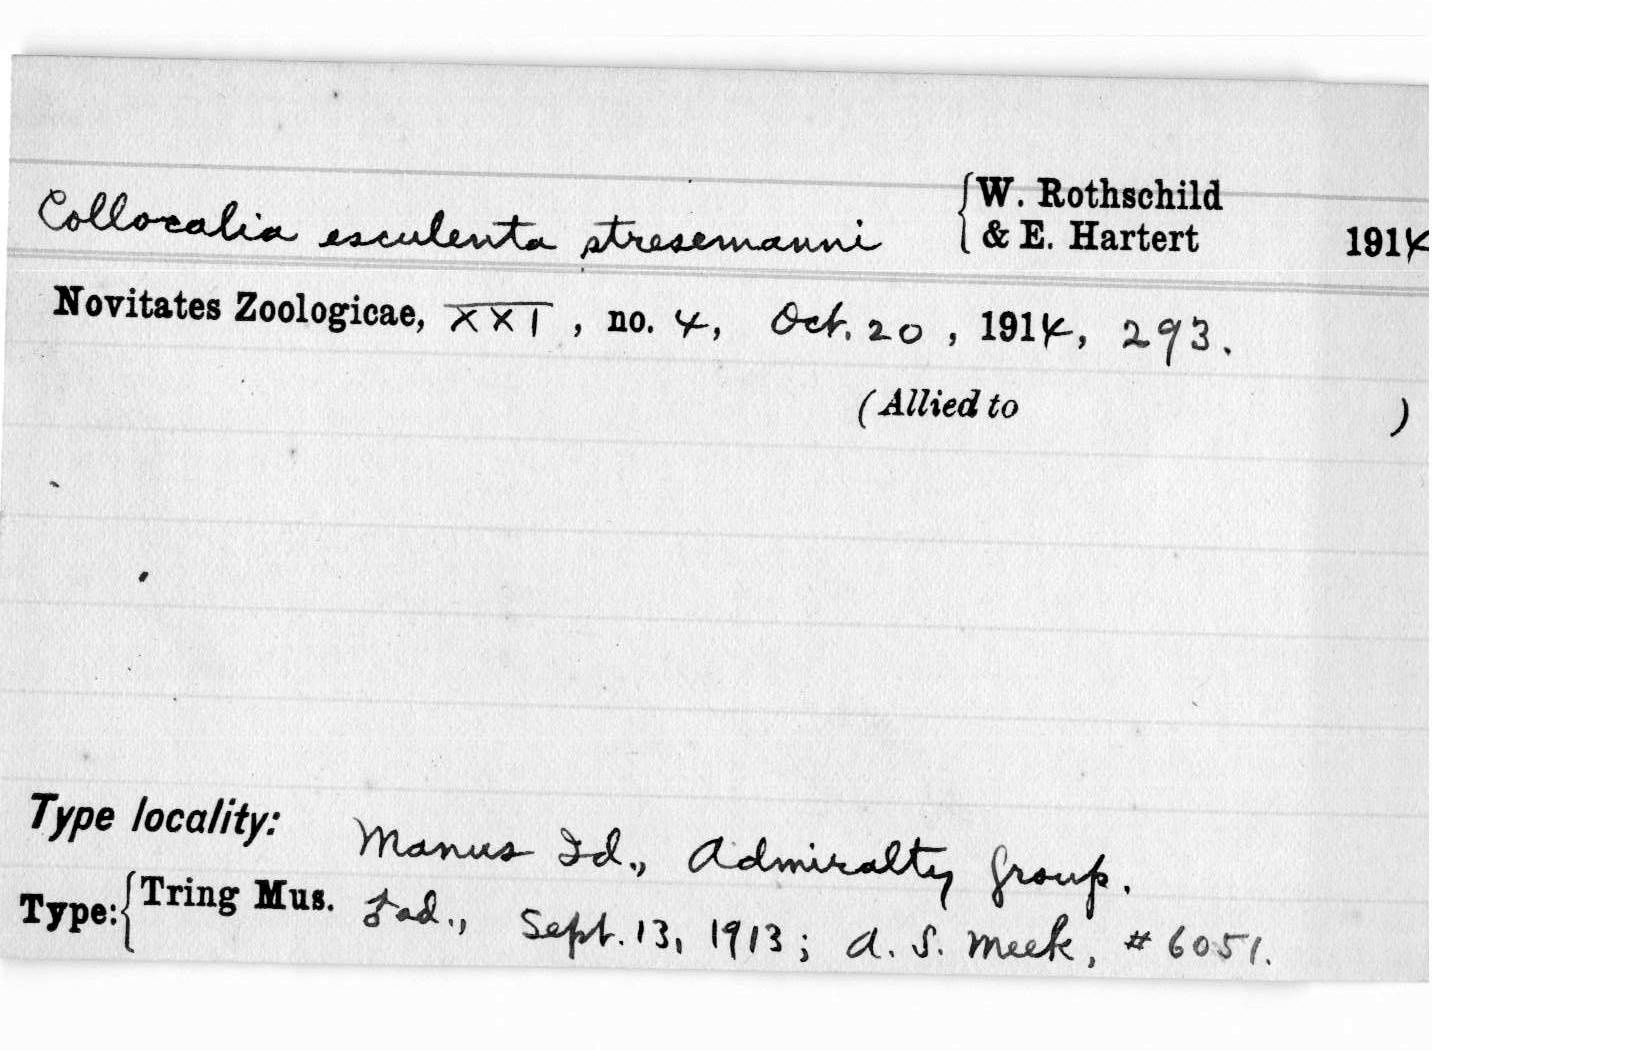 Collocalia esculenta stresemanni {W. Rothschild & E. Hartert 1914
Novitates Zoologicae, XXI, no. 4, Oct. 20, 1914, 293.
(Allied to )
Type locality: Manus Id., Admiralty Group.
Type: {Tring Mus. ad., Sept. 13, 1913; A. S. Meek, # 6051.